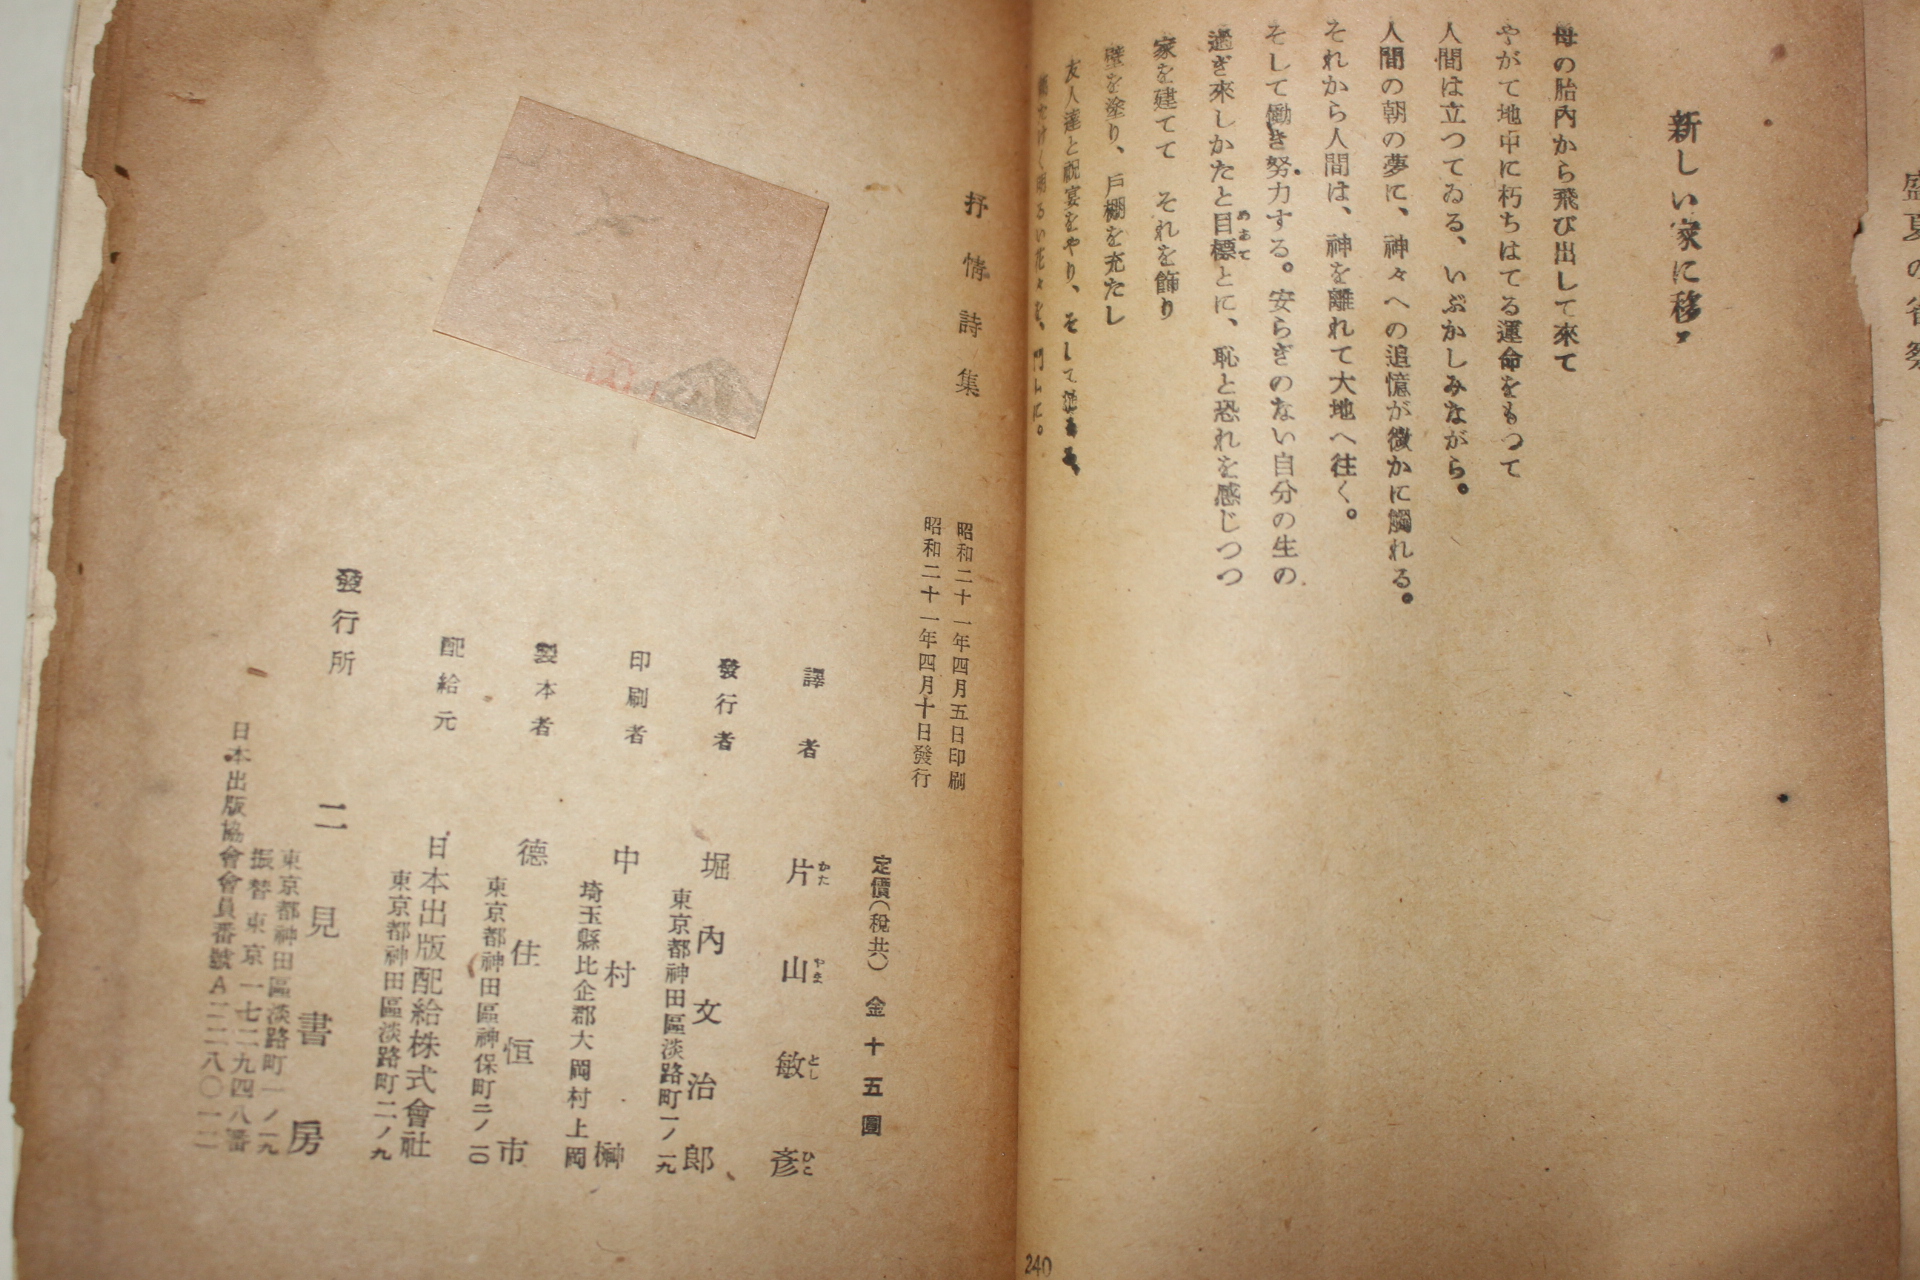 盛夏の
新しい家に移
母の胎内から飛び出して來て
やがて地中に朽ちはてる運命をもつて
人間は立つてゐる、いぶかしみながら。
人間の朝の夢に、神々への追憶が微かに觸れる。
それから人間は、神を離れて大地へ往く。
そして働き努力する。安らぎのない自分の生の
過ぎ來しかたと目標とに、恥と恐れを感じつつ
めあて
家を建てて それを飾り
壁を塗り、戸棚を充たし
友人達と祝宴をやり、そして
明るい花々を、門口に。
240
抒情詩集
昭和二十一年四月五日印刷
昭和二十一年四月十日發行
定價(税共) 金十五圓
譯者 片山敏彥
かた やま とし ひこ
發行者 堀內文治郎
東京都神田區淡路町一ノ一九
印刷者 中村榊
埼玉縣比企郡大岡村上岡
製本者 德住恒市
東京都神田區神保町二ノ二〇
配給元 日本出版配給株式會社
東京都神田區淡路町二ノ九
發行所 二見書房
東京都神田區淡路町一ノ一九
振替東京一七二九四八番
日本出版協會會員番號A二二八〇一二